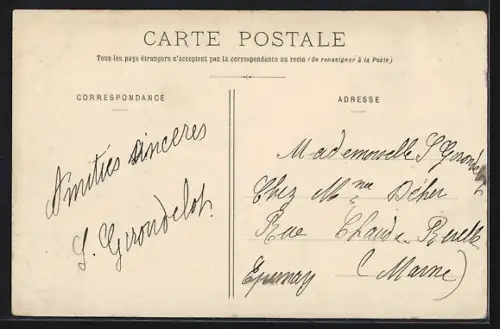 CARTE POSTALE
Tous les pays étrangers n'acceptent pas la correspondance au recto (Se renseigner à la Poste)
CORRESPONDANCE
ADRESSE
Amitiés sincères
S. Girondelot
Mademoiselle S Girondelot
Chez Mme
Rue Chaude Ruelle
Epernay (Marne)